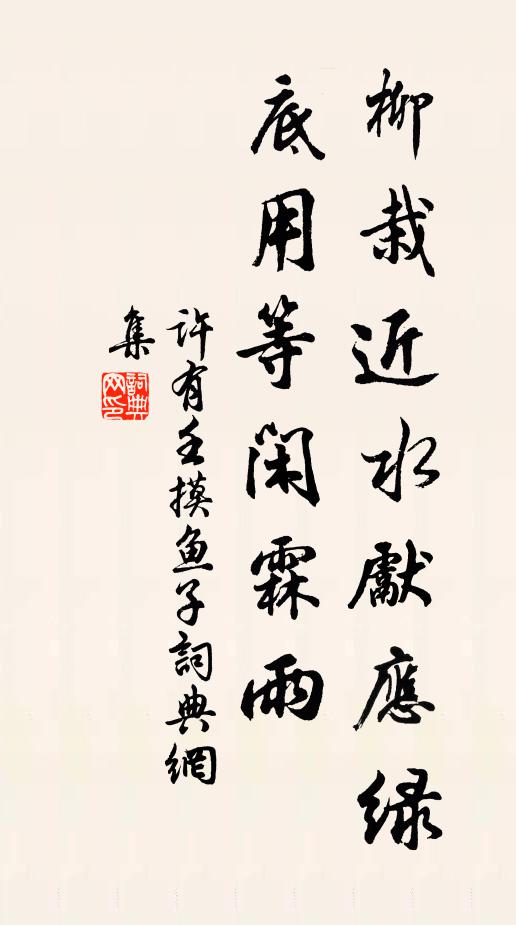 柳栽近水獻應綠
底用等閑霖雨
許有壬摸魚子詞典網
集
詞典
网印